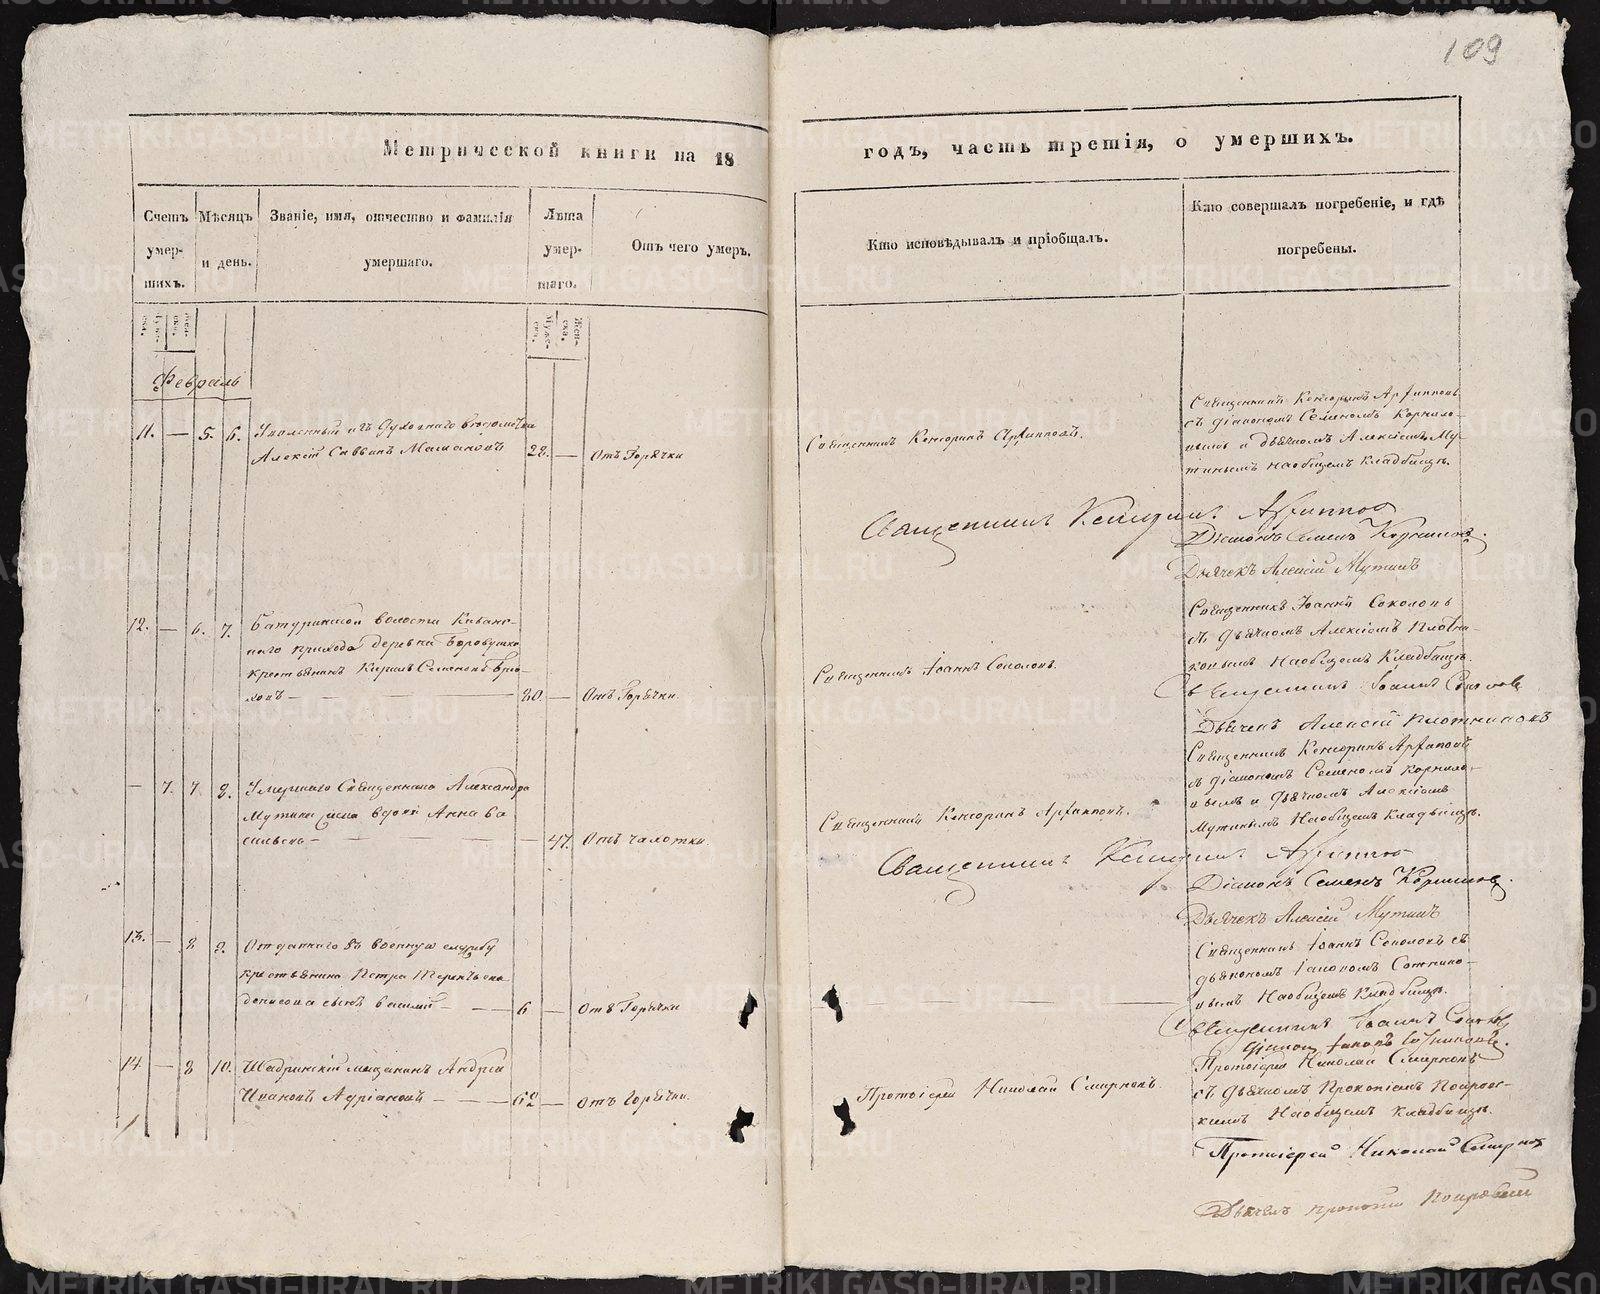 109
Метрической книги на 18
годъ, часть третія, о умершихъ.
Счетъ умер- шихъ.
Мѣсяцъ и день.
Званіе, имя, отчество и фамилія умершаго.
Лѣта умер- шаго.
Отъ чего умеръ.
Кто исповѣдывалъ и пріобщалъ.
Кто совершалъ погребеніе, и гдѣ погребены.
Февраль
11. — 5. 6.
Уволенный изъ Духовнаго
Алексій Саввинъ
22. — Отъ Горячки
Священникъ Кенсоринъ Арфинповъ.
Священникъ Кенсоринъ Арфинповъ
съ діакономъ Семеномъ Корнило-
вымъ и дьячкомъ Алексіемъ Му-
тинымъ на общемъ кладбищѣ.
Священникъ Кенсоринъ
Діаконъ Семенъ Корниловъ.
Дьячекъ Алексій Мутинъ
12. — 6. 7.
Батуринской волости
наго прихода деревни
крестьянинъ Кирилъ Семеновъ
ловъ — 80. — Отъ Горячки.
Священникъ Іоаннъ Соколовъ.
Священникъ Іоаннъ Соколовъ
съ дьячкомъ Алексіемъ Плотни-
ковымъ на общемъ Кладбищѣ.
Священникъ Іоаннъ Соколовъ
Дьячекъ Алексій Плотниковъ
— 7. 7. 8.
Умершаго Священника Александра
Мутина жена вдова Анна Ва
сильева — 47. Отъ чахотки.
Священникъ Кенсоринъ Арфинповъ.
Священникъ Кенсоринъ
съ діакономъ Семеномъ Корнило-
вымъ и дьячкомъ Алексіемъ
Мутинымъ на общемъ кладбищѣ.
Священникъ Кенсоринъ
Діаконъ Семенъ Корниловъ.
Дьячекъ Алексій Мутинъ
13. — 8 9.
Отданнаго въ военную службу
крестьянина Петра Терентьева
Денисова сынъ Василій — 6 — Отъ Горячки
Священникъ Іоаннъ Соколовъ съ
дьякономъ Іаковомъ Сотнико-
вымъ на общемъ Кладбищѣ.
Священникъ Іоаннъ Соколовъ
діаконъ Іаковъ Сотниковъ.
14. — 8 10.
Шадринскій мещанинъ Андрей
Ивановъ Адріановъ — 62 — отъ горячки.
Протоіерей Николай Смирновъ.
Протоіерей Николай Смирновъ
съ дьячкомъ Прокопіемъ Покровс-
кимъ на общемъ кладбищѣ.
Протоіерей Николай Смирновъ
Дьячекъ Прокопій Покровскій